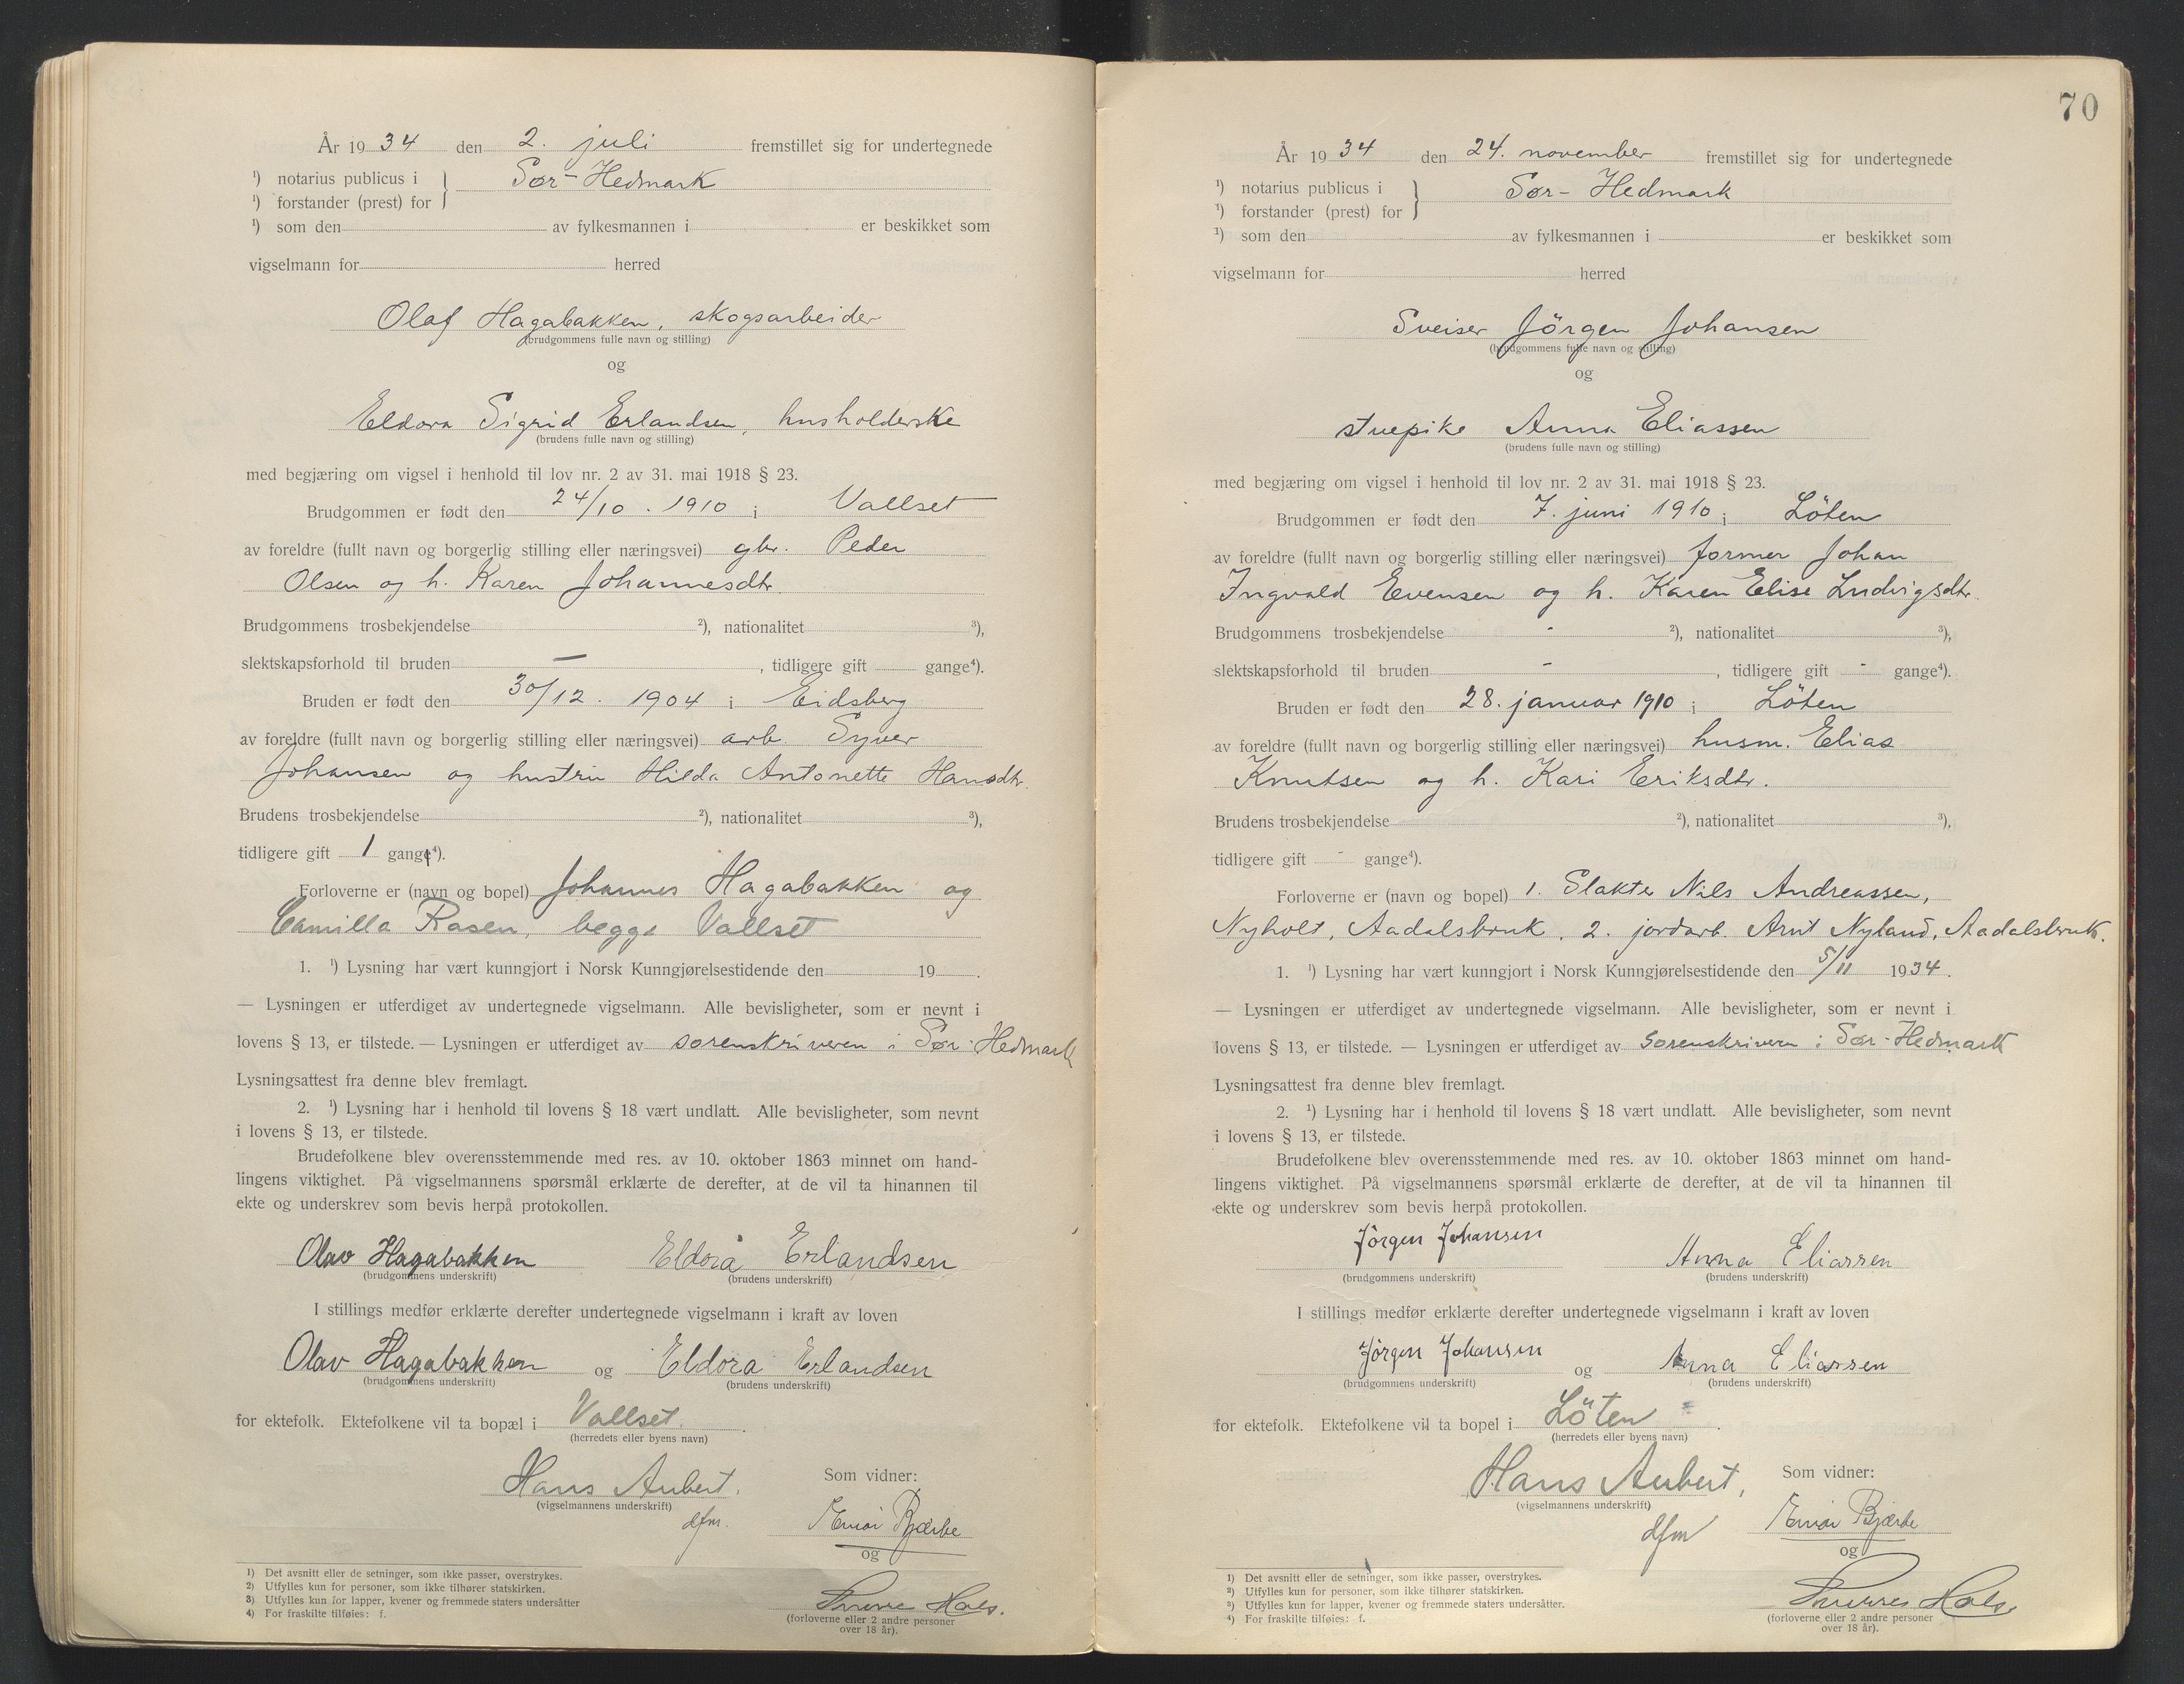 År 1934 den 2. juli fremstillet sig for undertegnede
¹) notarius publicus i } Sør-Hedmark
¹) forstander (prest) for
¹) som den av fylkesmannen i er beskikket som
vigselmann for herred
Olaf Hagabakken, skogsarbeider
(brudgommens fulle navn og stilling)
og
Eldora Sigrid Erlandsen, husholderske
(brudens fulle navn og stilling)
med begjæring om vigsel i henhold til lov nr. 2 av 31. mai 1918 § 23.
Brudgommen er født den 24/10. 1910 i Vallset
av foreldre (fullt navn og borgerlig stilling eller næringsvei) gbr. Peder
Olsen og h. Karen Johannesdtr.
Brudgommens trosbekjendelse ²), nationalitet ³),
slektskapsforhold til bruden — , tidligere gift gange⁴).
Bruden er født den 30/12. 1904 i Eidsberg
av foreldre (fullt navn og borgerlig stilling eller næringsvei) arb. Syver
Johansen og hustru Hilda Antonette Hansdtr.
Brudens trosbekjendelse ²), nationalitet ³),
tidligere gift 1 gange⁴).
Forloverne er (navn og bopel) Johannes Hagabakken og
Camilla Rasen, begge Vallset
1. ¹) Lysning har vært kunngjort i Norsk Kunngjørelsestidende den 19 .
— Lysningen er utferdiget av undertegnede vigselmann. Alle bevisligheter, som er nevnt i
lovens § 13, er tilstede. — Lysningen er utferdiget av sorenskriveren i Sør-Hedmark
Lysningsattest fra denne blev fremlagt.
2. ¹) Lysning har i henhold til lovens § 18 vært undlatt. Alle bevisligheter, som nevnt
i lovens § 13, er tilstede.
Brudefolkene blev overensstemmende med res. av 10. oktober 1863 minnet om hand-
lingens viktighet. På vigselmannens spørsmål erklærte de derefter, at de vil ta hinannen til
ekte og underskrev som bevis herpå protokollen.
Olav Hagabakken Eldora Erlandsen
(brudgommens underskrift) (brudens underskrift)
I stillings medfør erklærte derefter undertegnede vigselmann i kraft av loven
Olav Hagabakken og Eldora Erlandsen
(brudgommens underskrift) (brudens underskrift)
for ektefolk. Ektefolkene vil ta bopæl i Vallset.
(herredets eller byens navn)
Hans Aubert. Som vidner:
(vigselmannens underskrift)
dfm. Bjærke
og
Hals.
(forloverne eller 2 andre personer
over 18 år).
1) Det avsnitt eller de setninger, som ikke passer, overstrykes.
2) Utfylles kun for personer, som ikke tilhører statskirken.
3) Utfylles kun for lapper, kvener og fremmede staters undersåtter
4) For fraskilte tilføies: f.
70
År 1934 den 24. november fremstillet sig for undertegnede
¹) notarius publicus i } Sør-Hedmark
¹) forstander (prest) for
¹) som den av fylkesmannen i er beskikket som
vigselmann for herred
Sveiser Jörgen Johansen
(brudgommens fulle navn og stilling)
og
stuepike Anna Eliassen
(brudens fulle navn og stilling)
med begjæring om vigsel i henhold til lov nr. 2 av 31. mai 1918 § 23.
Brudgommen er født den 7. juni 1910 i Löten
av foreldre (fullt navn og borgerlig stilling eller næringsvei) former Johan
Ingvald Evensen og h. Karen Elise Ludvigsdtr.
Brudgommens trosbekjendelse - ²), nationalitet ³),
slektskapsforhold til bruden - , tidligere gift - gange⁴).
Bruden er født den 28. januar 1910 i Löten
av foreldre (fullt navn og borgerlig stilling eller næringsvei) husm. Elias
Knutsen og h. Kari Eriksdtr.
Brudens trosbekjendelse ²), nationalitet ³),
tidligere gift - gange⁴).
Forloverne er (navn og bopel) 1. Slakter Nils Andreassen,
Nyholt, Aadalsbruk, 2. jordarb. Arnt Nyland, Aadalsbruk.
1. ¹) Lysning har vært kunngjort i Norsk Kunngjørelsestidende den 5/11 1934.
— Lysningen er utferdiget av undertegnede vigselmann. Alle bevisligheter, som er nevnt i
lovens § 13, er tilstede. — Lysningen er utferdiget av Sorenskriveren i Sør-Hedmark
Lysningsattest fra denne blev fremlagt.
2. ¹) Lysning har i henhold til lovens § 18 vært undlatt. Alle bevisligheter, som nevnt
i lovens § 13, er tilstede.
Brudefolkene blev overensstemmende med res. av 10. oktober 1863 minnet om hand-
lingens viktighet. På vigselmannens spørsmål erklærte de derefter, at de vil ta hinannen til
ekte og underskrev som bevis herpå protokollen.
Jörgen Johansen Anna Eliassen
(brudgommens underskrift) (brudens underskrift)
I stillings medfør erklærte derefter undertegnede vigselmann i kraft av loven
Jörgen Johansen og Anna Eliassen
(brudgommens underskrift) (brudens underskrift)
for ektefolk. Ektefolkene vil ta bopel i Löten .
(herredets eller byens navn)
Hans Aubert, Som vidner:
(vigselmannens underskrift)
dfm Bjærke
og
Hals.
(forloverne eller 2 andre personer
over 18 år).
1) Det avsnitt eller de setninger, som ikke passer, overstrykes.
2) Utfylles kun for personer, som ikke tilhører statskirken.
3) Utfylles kun for lapper, kvener og fremmede staters undersåtter.
4) For fraskilte tilføies: f.